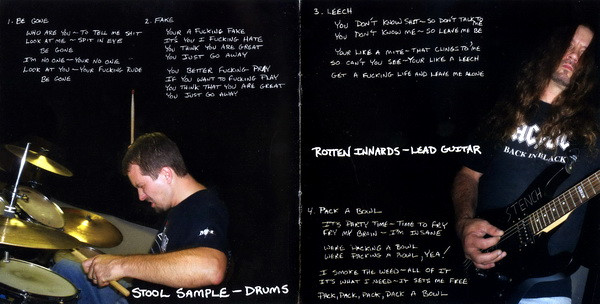 1. BE GONE
WHO ARE YOU - TO TELL ME SHIT
LOOK AT ME - SPIT IN EYE
BE GONE
I'M NO ONE - YOUR NO ONE
LOOK AT YOU - YOUR FUCKING RUDE
BE GONE
2. FAKE
YOUR A FUCKING FAKE
IT'S YOU I FUCKING HATE
YOU THINK YOU ARE GREAT
YOU JUST GO AWAY
YOU BETTER FUCKING PRAY
IF YOU WANT TO FUCKING PLAY
YOU THINK THAT YOU ARE GREAT
YOU JUST GO AWAY
STOOL SAMPLE - DRUMS
3. LEECH
YOU DON'T KNOW SHIT - SO DON'T TALK TO
YOU DON'T KNOW ME - SO LEAVE ME BE
YOUR LIKE A MITE - THAT CLINGS TO ME
SO CAN'T YOU SEE - YOUR LIKE A LEECH
GET A FUCKING LIFE AND LEAVE ME ALONE
AC/DC
BACK IN BLACK
ROTTEN INNARDS - LEAD GUITAR
STENCH
4. PACK A BOWL
IT'S PARTY TIME - TIME TO FRY
FRY MY BRAIN - I'M INSANE
WERE PACKING A BOWL
WERE PACKING A BOWL, YEA!
I SMOKE THE WEED - ALL OF IT
IT'S WHAT I NEED - IT SETS ME FREE
PACK, PACK, PACK, PACK A BOWL